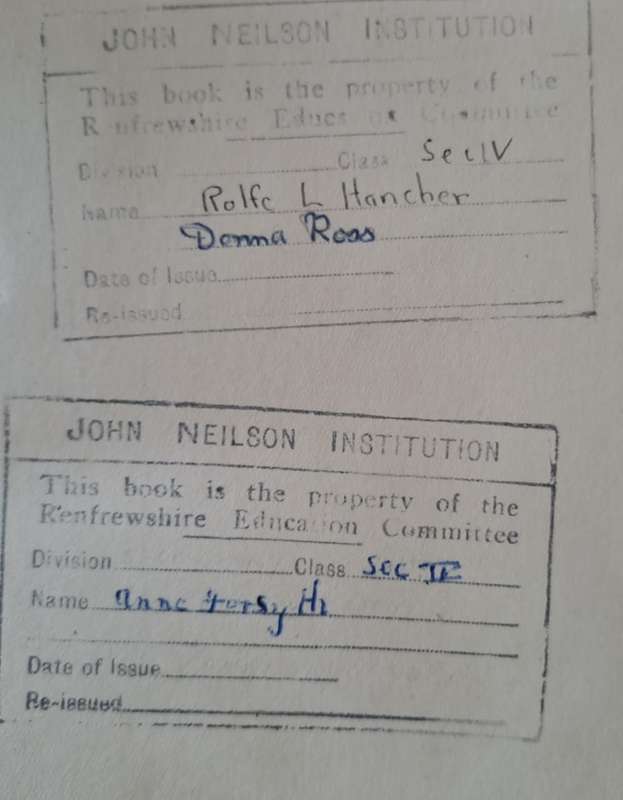 JOHN NEILSON INSTITUTION
This book is the property of the
Renfrewshire Educa on Committee
Division Class Sec IV
Name Rolfe L Hancher
Donna Ross
Date of Issue
Re-issued
JOHN NEILSON INSTITUTION
This book is the property of the
Renfrewshire Education Committee
Division Class Sec IV
Name Anne Forsyth
Date of Issue
Re-issued